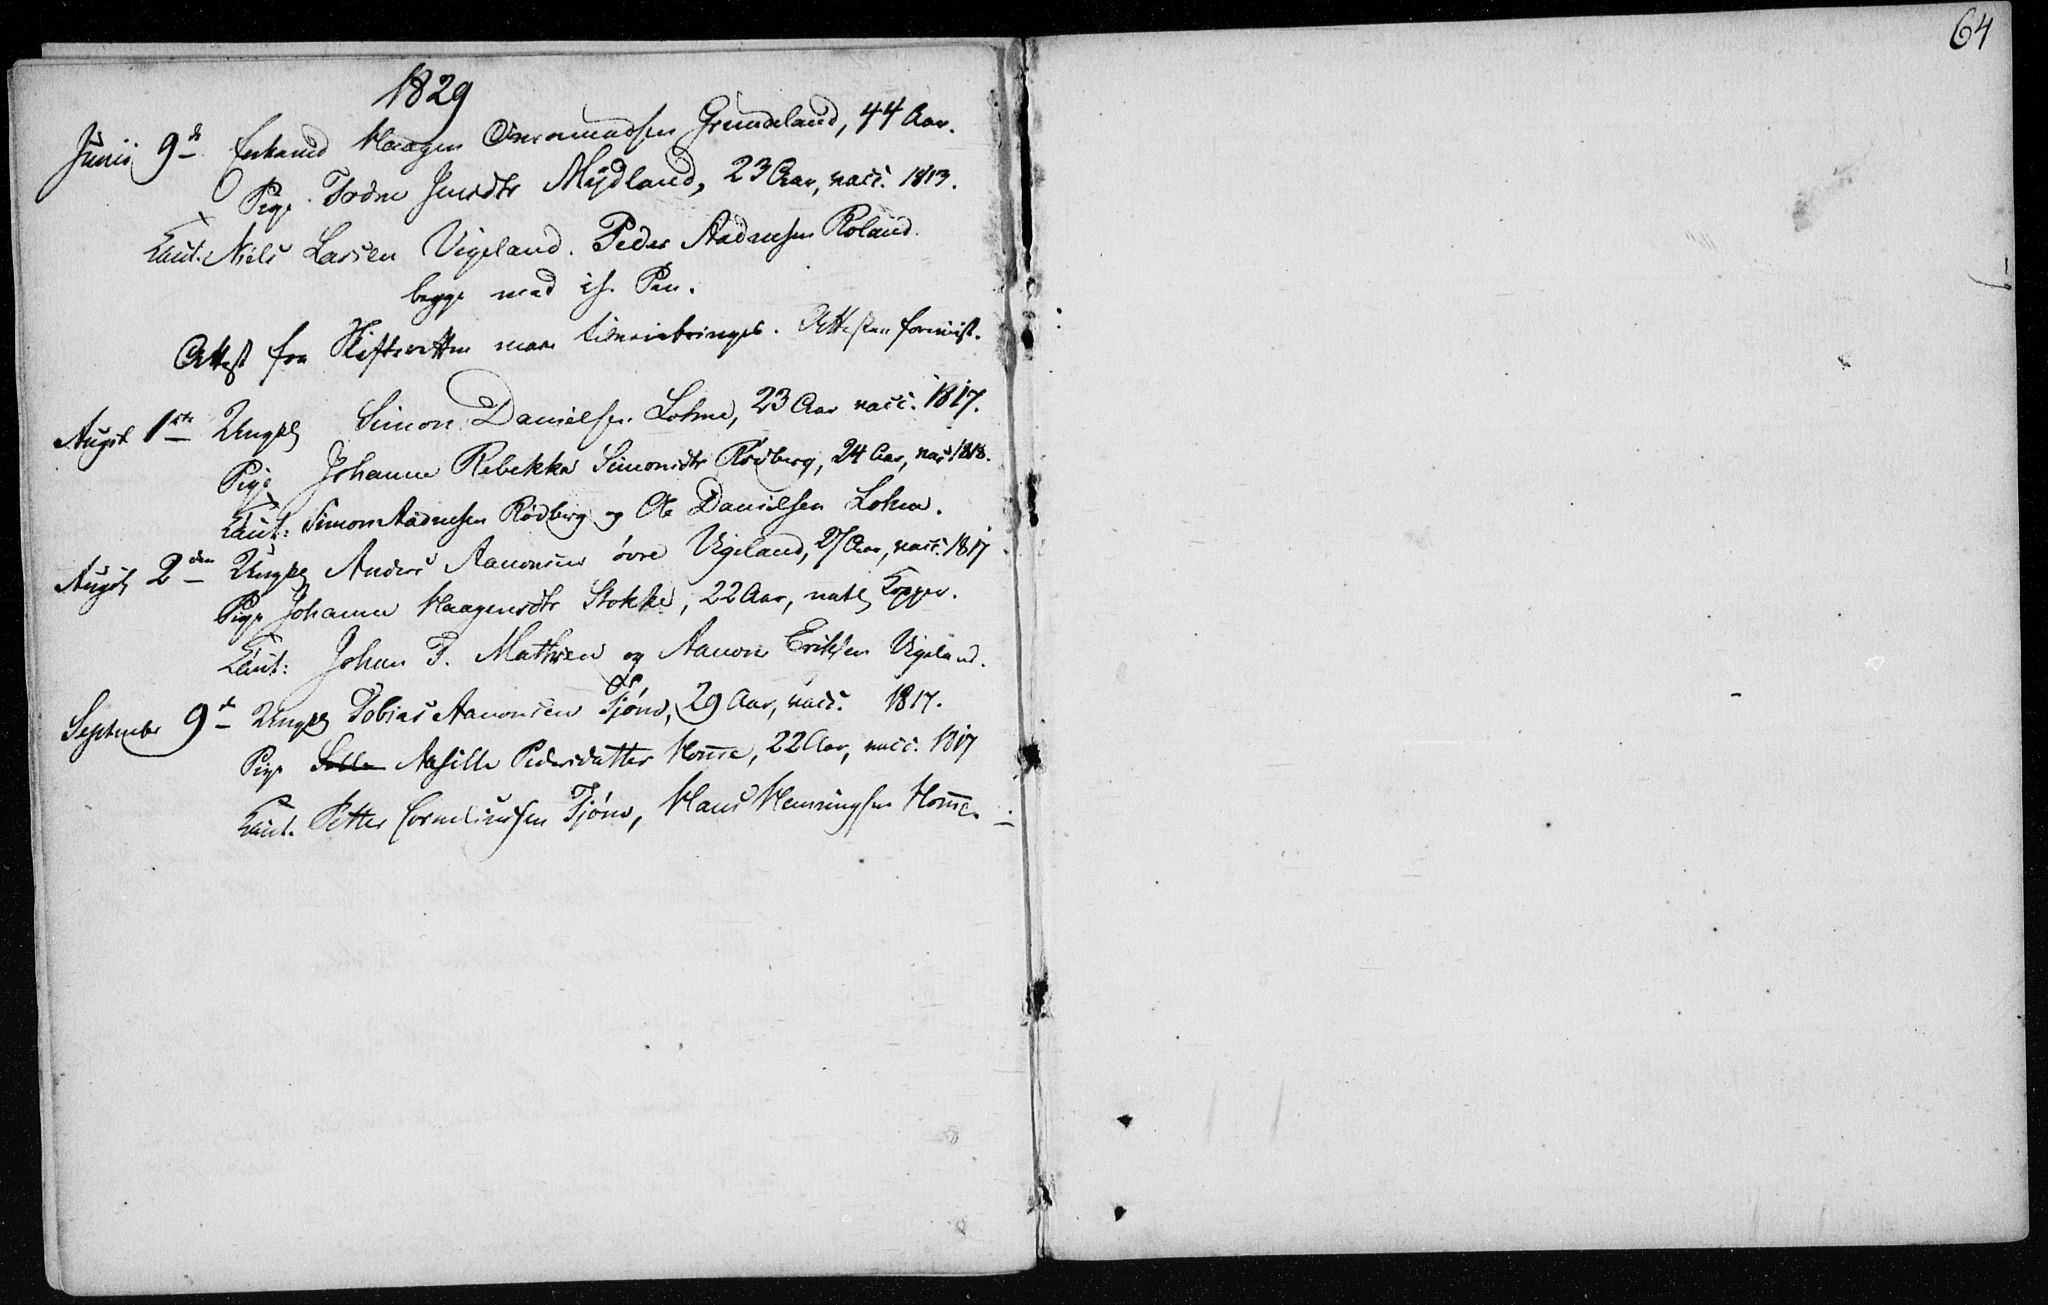 1829
Junii 9de Enkemd Haagen Omnmundsen Grundeland, 44 Aar.
Pige Todne Jensdtr Mydland, 23 Aar, vacc. 1813.
Caut. Niels Larsen Vigeland. Peder Aadnesen Roland.
begge med ih. Pen.
Attest fra Skifteretten maa tilveiebringes. Attesten foreviist.
Augst 1ste Ungkl Simon Danielsen Lohne, 23 Aar vacc. 1817.
Pige Johanne Rebekka Simonsdtr Rødberg, 24 Aar, vac 1818.
Caut: Simon Aadnesen Rødberg og Ole Danielsen Lohne.
Augst 2den Ungkl Anders Aanonsen øvre Vigeland, 27 Aar, vacc. 1817
Pige Johanne Haagensdtr Stokke, 22 Aar, natl Kopper.
Caut: Johan F. Mathsen og Aanon Eriksen Vigeland.
September 9de Ungkl Tobias Aanonsen Tjøm, 29 Aar, vacc. 1817.
Pige Aasille Pedersdatter Homme, 22 Aar, vacc. 1817
Caut. Petter Corneliussen Tjøm, Hans Henningsen Homme.
64